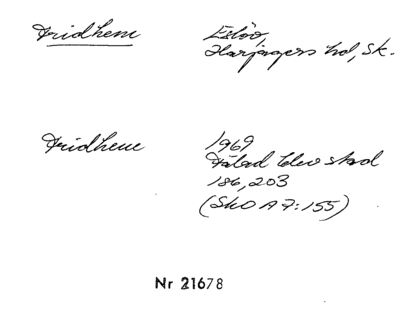 Fridhem Eslöv,
Harjagers hd, Sk.
Fridhem 1969
stad
186,203
(SkO A 7:155)
Nr 21678